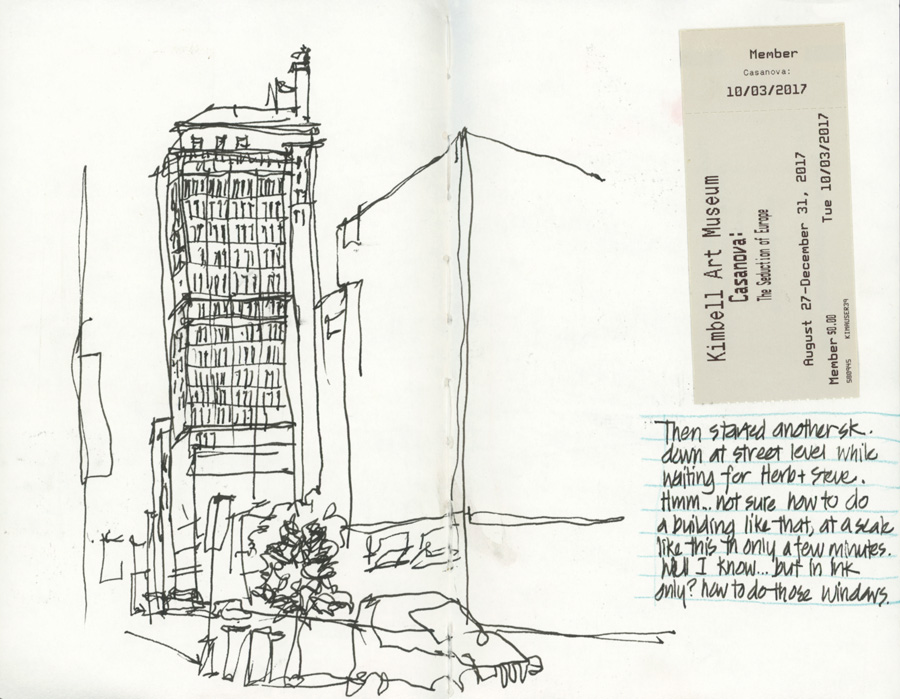 Member
Casanova:
10/03/2017
Kimbell Art Museum
Casanova:
The Seduction of Europe
August 27-December 31, 2017
Tue 10/03/2017
Member $0.00
580945 KIMAUSER39
Then started another sk.
down at street level while
waiting for Herb + Steve.
Hmm... not sure how to do
a building like that, at a scale
like this in only a few minutes.
Well I know... but in ink
only? how to do those windows.